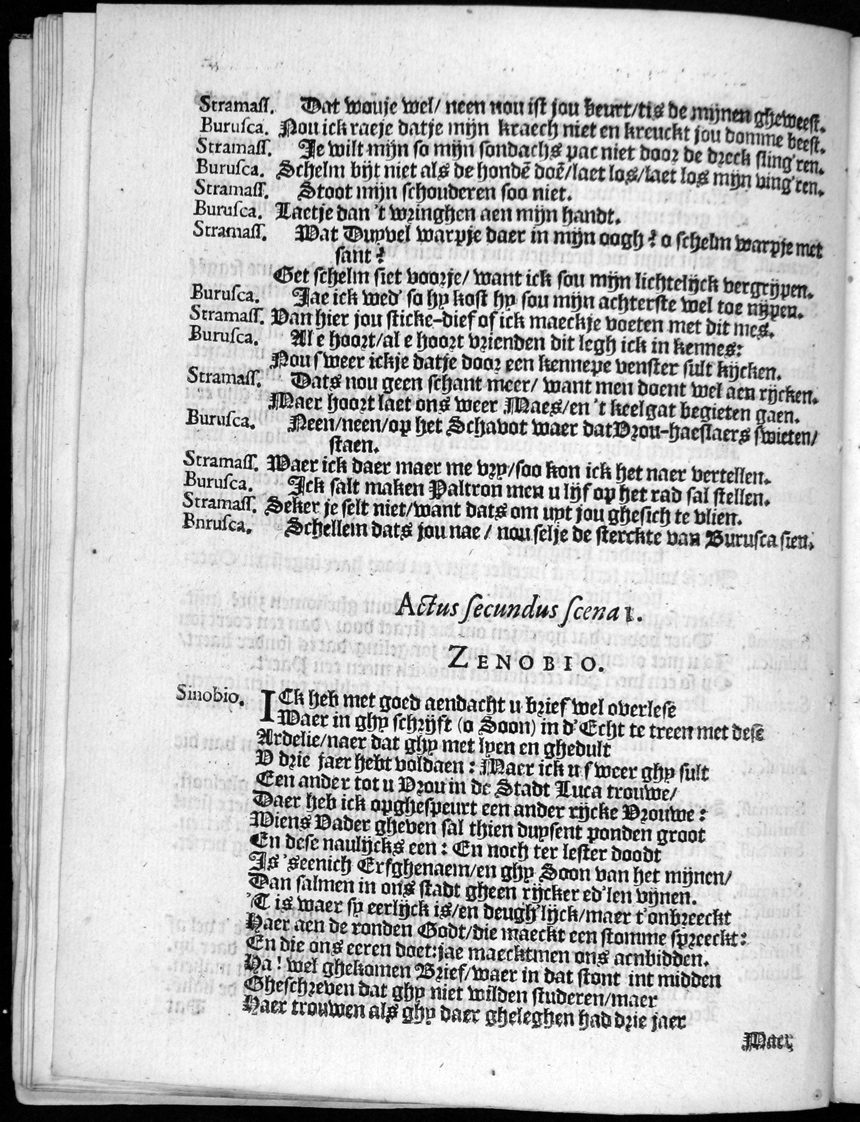 Stramass. Dat wouje wel/ neen nou ist jou beurt/tis de mijnen gheweest.
Burusca. Nou ick raeje datje mijn kraech niet en kreuckt jou domme beest.
Stramass. Je wilt mijn so mijn sondachs pac niet door de dreck sling'ren.
Burusca. Schelm bijt niet als de hondē doē/laet los/laet los mijn ving'ren.
Stramass. Stoot mijn schouderen soo niet.
Burusca. Laetje dan 't wringhen aen mijn handt.
Stramass. Wat Duyvel warpje daer in mijn oogh? o schelm warpje met
sant?
Get schelm siet voorje/ want ick sou mijn lichtelijck vergrijpen.
Burusca. Jae ick wed' so hy kost hy sou mijn achterste wel toe nijpen.
Stramass. Van hier jou sticke-dief of ick maeckje voeten met dit mes.
Burusca. Al e hoort/al e hoort vrienden dit legh ick in kennes:
Nou s'weer ickje datje door een kennepe venster sult kijcken.
Stramass. Dats nou geen schant meer/ want men doent wel aen rijcken.
Maer hoort laet ons weer Maes/en 't keelgat begieten gaen.
Burusca. Neen/neen/op het Schavot waer dat Vrou-haestaers swieten/
staen.
Stramass. Waer ick daer maer me vry/soo kon ick het naer vertellen.
Burusca. Ick salt maken Paltron men u lijf op het rad sal stellen.
Stramass. Seker je selt niet/want dats om uyt jou ghesich te vlien.
Bnrusca. Schellem dats jou nae / nou selje de sterckte van Burusca sien.
Actus secundus scena 1.
ZENOBIO.
Sinobio. ICk heb met goed aendacht u brief wel overlesē
Waer in ghy schrijft (o Soon) in d'Echt te treen met desē
Ardelie/naer dat ghy met lyen en ghedult
V drie jaer hebt voldaen: Maer ick u s'weer ghy sult
Een ander tot u Vrou in de Stadt Luca trouwe/
Daer heb ick opghespeurt een ander rijcke Vrouwe:
Wiens Vader gheven sal thien duysent ponden groot
En dese naulijcks een: En noch ter lester doodt
Is 'seenich Erfghenaem/en ghy Soon van het mijnen/
Dan salmen in ons stadt gheen rijcker ed'len vijnen.
'T is waer sy eerlijck is/en deugh'lijck/maer t'onbreeckt
Haer aen de ronden Godt/die maeckt een stomme spreeckt:
En die ons eeren doet:jae maecktmen ons aenbidden.
Ha! wel ghekomen Brief/waer in dat stont int midden
Gheschreven dat ghy niet wilden studeren/maer
Haer trouwen als ghy daer gheleghen had drie jaer
Maer